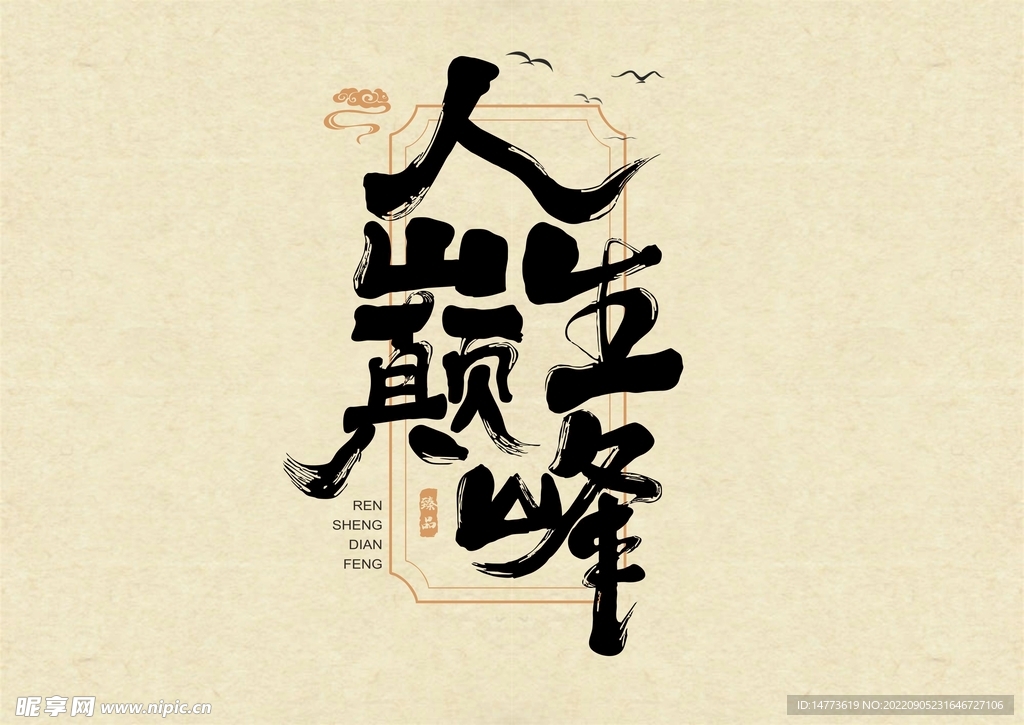 人生
巅峰
REN
SHENG
DIAN
FENG
臻品
昵享网 www.nipic.cn
ID:14773619 NO:20220905231646727106